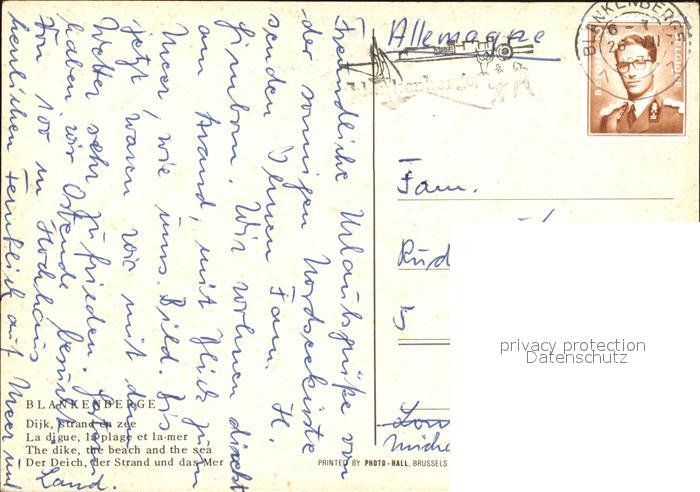 Freundliche Urlaubsgrüße von
der sonnigen Nordseeküste
senden Ihnen Fam. H.
Wir wohnen direkt
am Strand, mit Blick zum
Meer, wie uns. Bild. Bis
jetzt waren wir mit dem
Wetter sehr zufrieden. Gestern
haben wir Ostende besucht
Von 100 m Hochhaus
herrlichen Fernblick auf Meer und
Land.
Allemagne
BLANKENBERGE
BELGIE BELGIQUE
Blankenberge
Fam.
privacy protection
Datenschutz
BLANKENBERGE
Dijk, strand en zee
La digue, la plage et la mer
The dike, the beach and the sea
Der Deich, der Strand und das Meer
PRINTED BY PHOTO-HALL, BRUSSELS